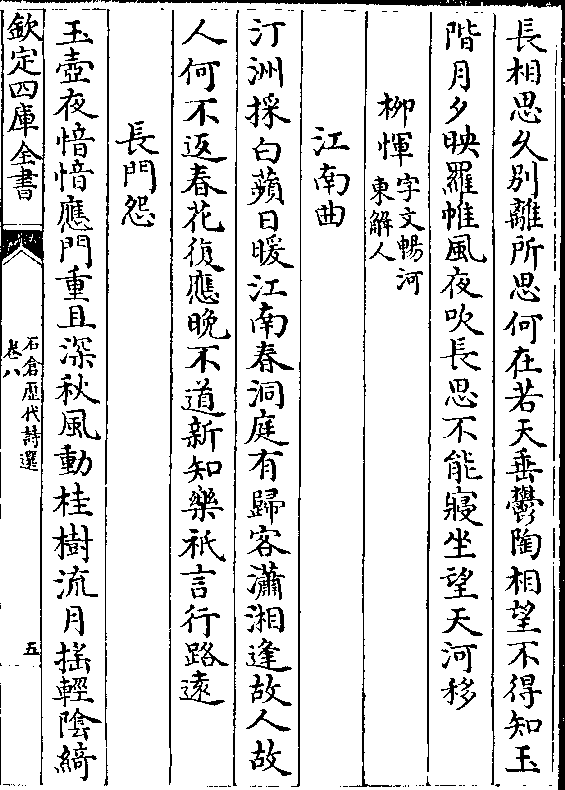 長相思久别離所思何在若天垂鬱陶相望不得知玉
階月夕映羅帷風夜吹長思不能寢坐望天河移
柳惲字文暢河東解人
江南曲
汀洲採白蘋日暖江南春洞庭有歸客瀟湘逢故人故
人何不返春花復應晚不道新知樂祇言行路遠
長門怨
玉壺夜愔愔應門重且深秋風動桂樹流月揺輕陰綺
欽定四庫全書
石倉歷代詩選
卷八
五